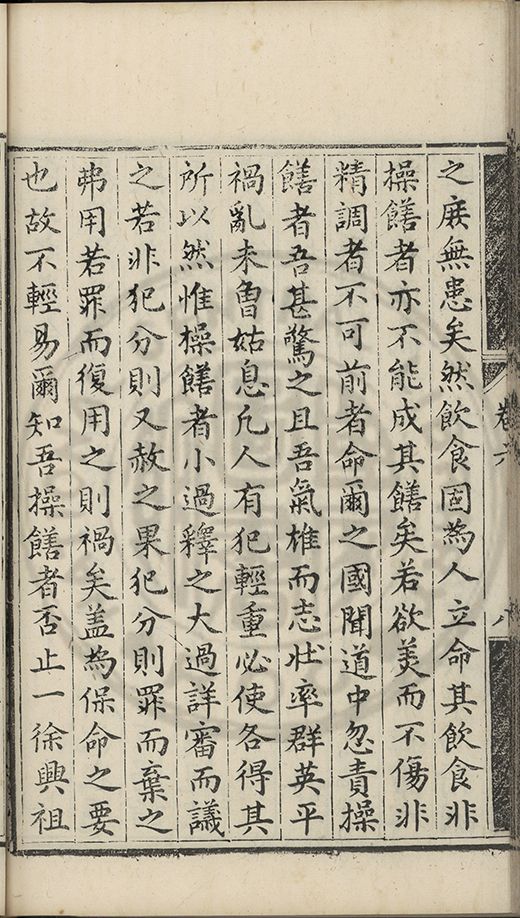 之庶無患矣然飲食固為人立命其飲食非
操饍者亦不能成其饍矣若欲美而不傷非
精調者不可前者命爾之國聞道中忽責操
饍者吾甚驚之且吾氣雄而志壯率群英平
禍亂未曾姑息凡人有犯輕重必使各得其
所以然惟操饍者小過釋之大過詳審而議
之若非犯分則又赦之果犯分則罪而棄之
弗用若罪而復用之則禍矣盖為保命之要
也故不輕易爾知吾操饍者否止一徐興祖
卷六
八